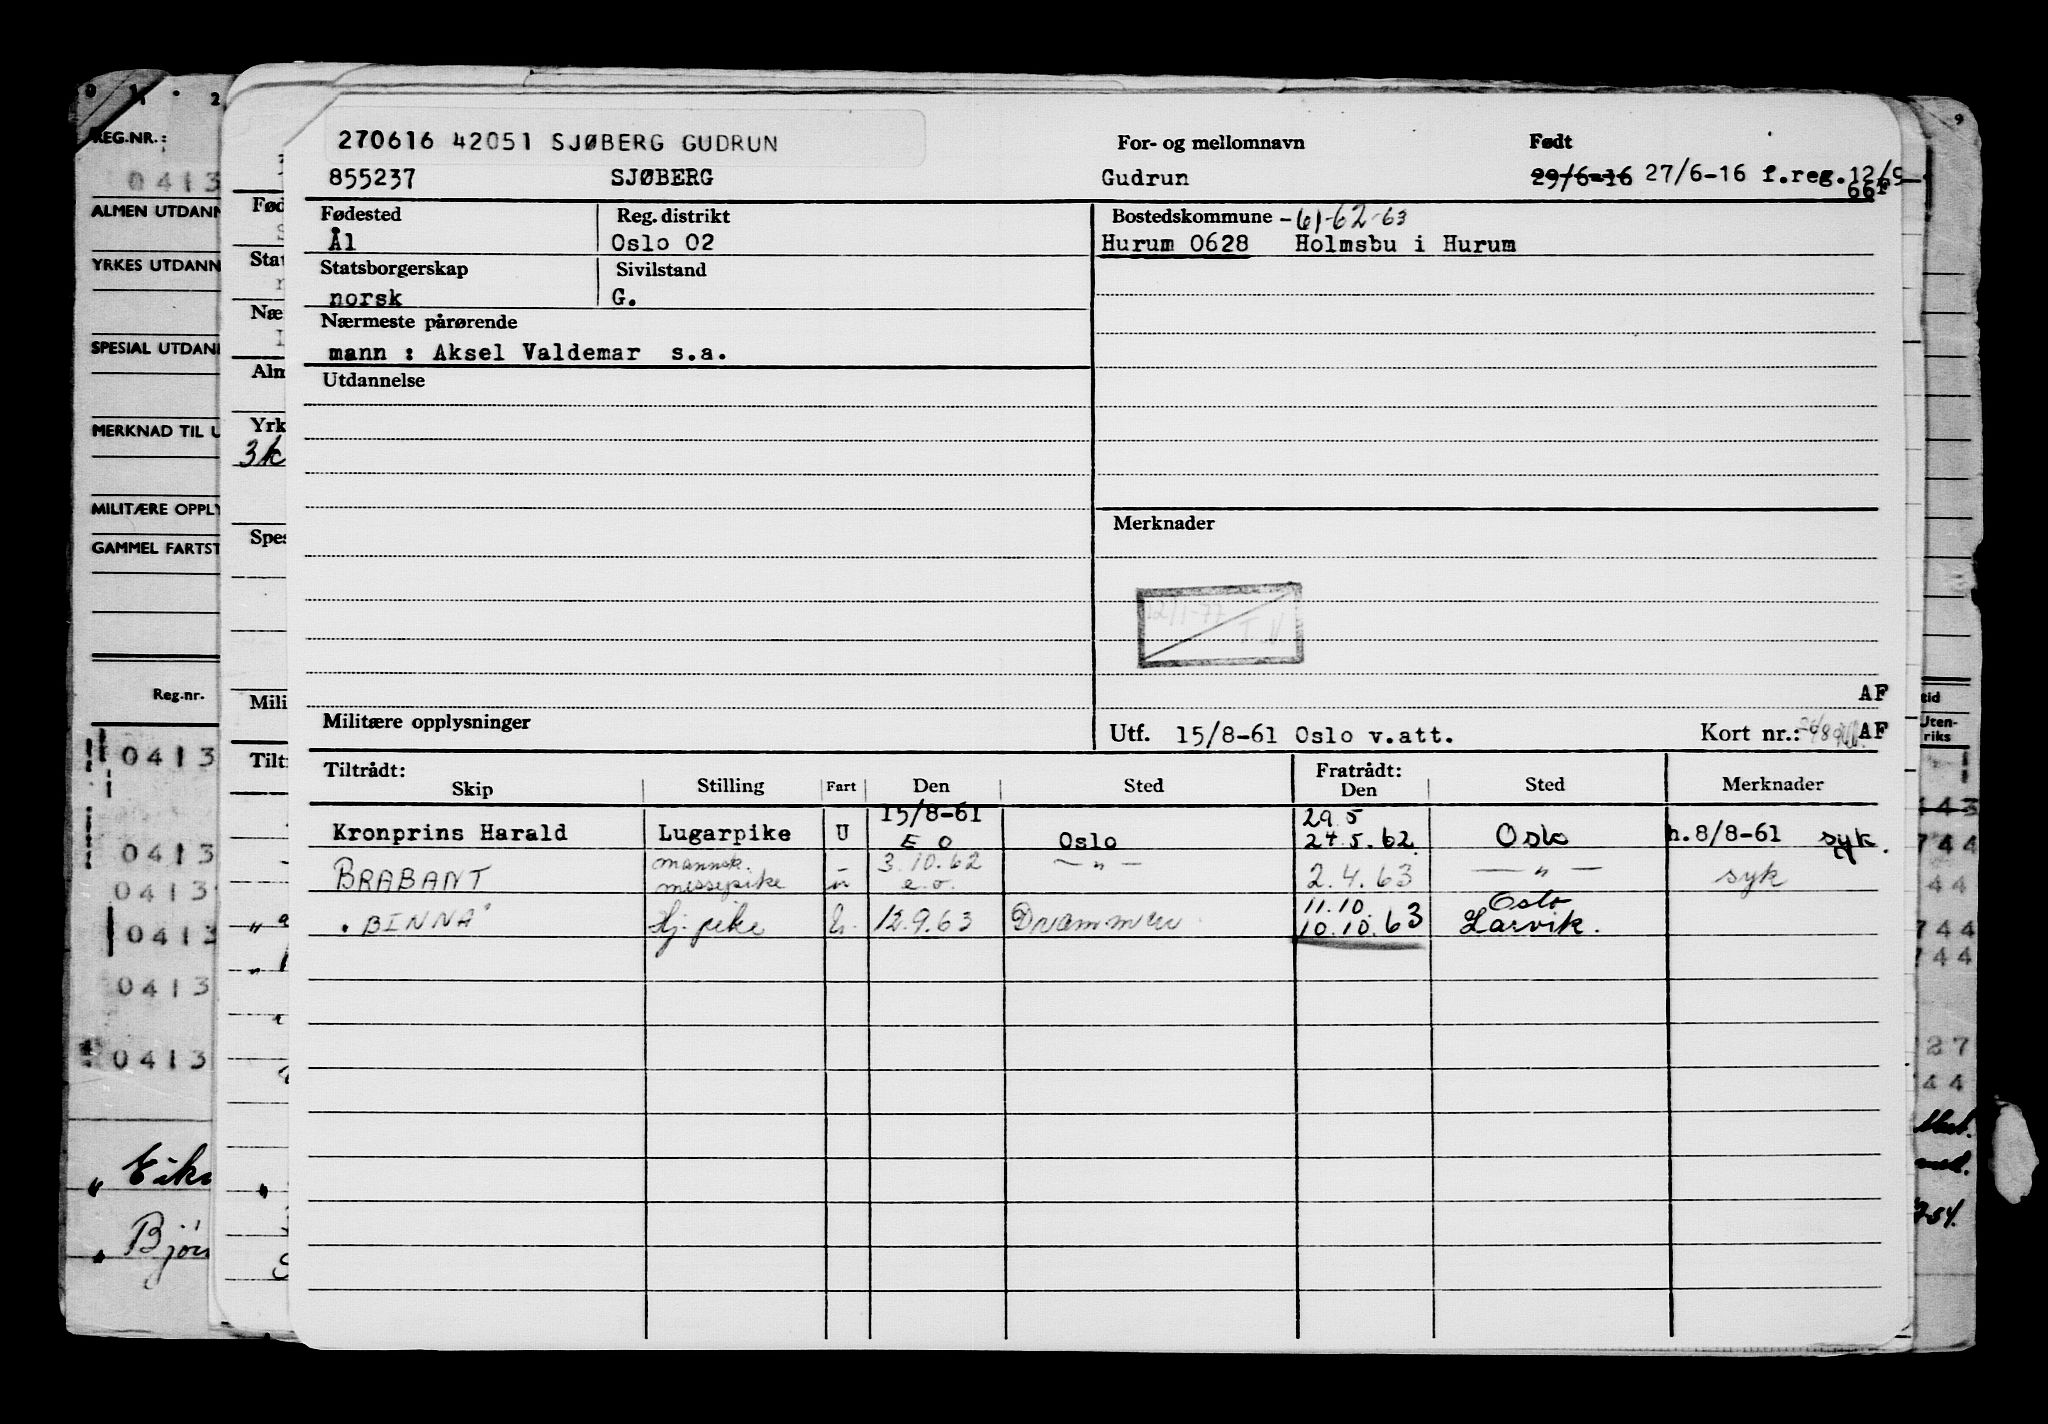 270616 42051 SJØBERG GUDRUN
For- og mellomnavn
Født
855237 SJØBERG Gudrun 29/6-16 27/6-16 f.reg.12/9-66F
Fødested
Reg. distrikt
Bostedskommune -61-62-63
Ål
Oslo 02
Hurum 0628 Holmsbu i Hurum
Statsborgerskap
Sivilstand
norsk
G.
Nærmeste pårørende
mann : Aksel Valdemar s.a.
Utdannelse
Merknader
12/1-77
T.N.
AF
Militære opplysninger
Utf. 15/8-61 Oslo v.att.
Kort nr.: AF
Tiltrådt:
Fratrådt:
Skip Stilling Fart Den Sted Den Sted Merknader
15/8-61 29.5
Kronprins Harald Lugarpike U E O Oslo 24.5.62. Oslo h.8/8-61 syk.
mannsk. 3.10.62 — " —
BRABANT messepike u e.o. 2.4.63 — " — syk
11.10. Oslo
"BINNA" Hj. pike U. 12.9.63 Drammen 10.10.63 Larvik.
REG.NR.:
0413
ALMEN UTDANN
YRKES UTDANN
SPESIAL UTDANN
MERKNAD TIL U
MILITÆRE OPPLY
GAMMEL FARTST
Reg.nr.
0413
0413
0413
0413
0413
0413
" Eiks
" Björ
Fød
Stat
Næ
Alm
Yrk
3k
Spes
Mili
Tiltr
9
tid
Uten-
riks
443
744
44
744
744
27
44
Mast.